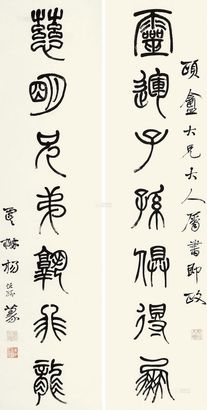 頤盦大兄大人屬書即政
靈運子孫俱得鳳
慈明兄弟孰非龍
楊沂孫篆